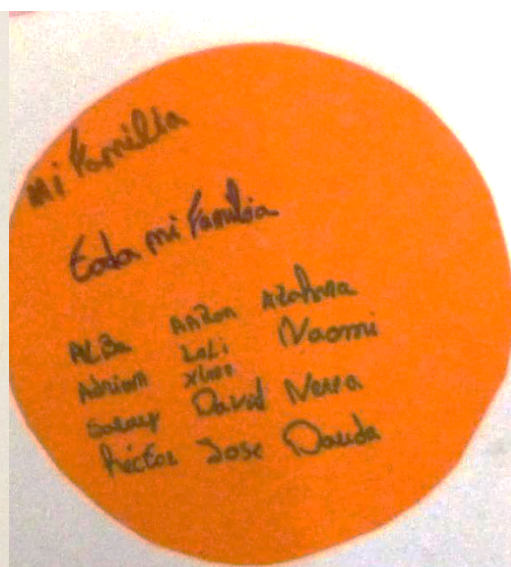 mi Familia
toda mi Familia
ALBA AARon AZahara
Adrian LoLi Naomi
Saray David Nerea
Héctor Jose